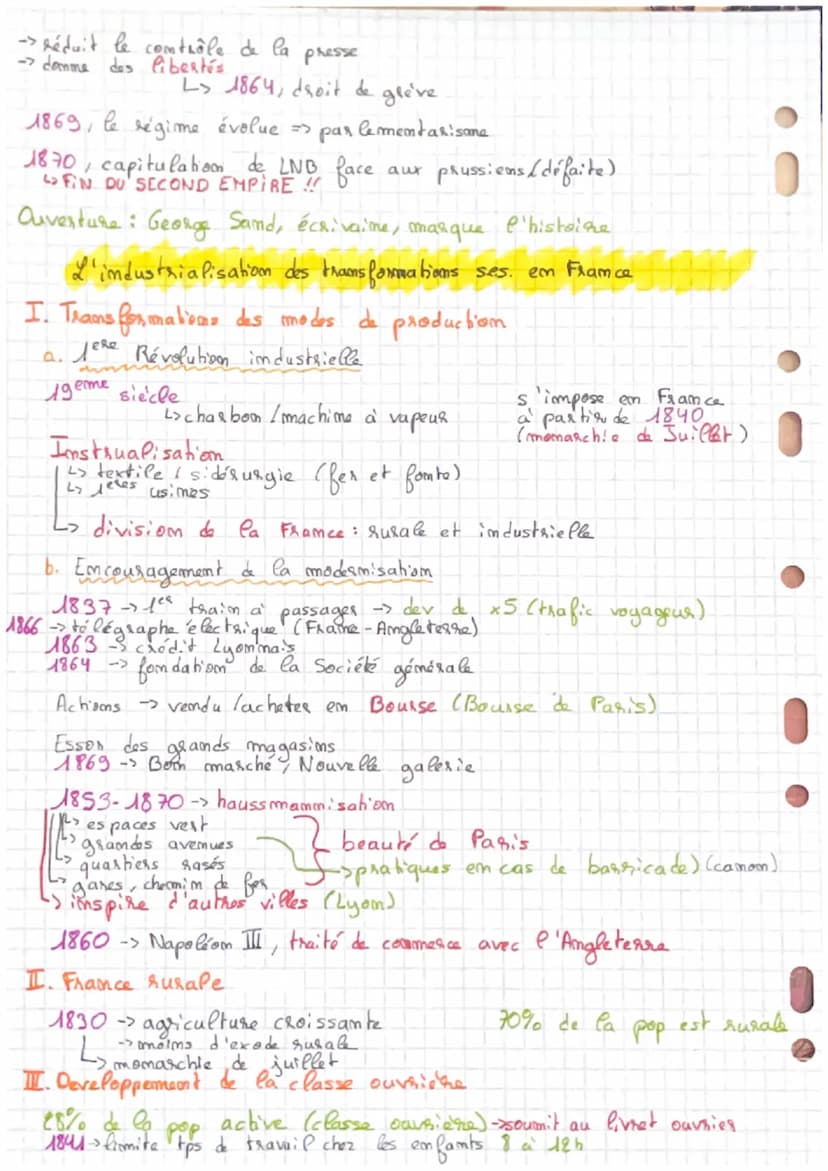 -> réduit le contrôle de la presse
-> donne des libertés
↳ 1864, droit de grève
1869, le régime évolue => parlementarisme
1870, capitulation de LNB face aux prussiens (défaite)
↳ FIN DU SECOND EMPIRE !!
Ouverture : George Sand, écrivaine, marque l'histoire
L'industrialisation des transformations ses. en France
I. Transformations des modes de production
a. 1ere Révolution industrielle
19eme siècle
↳ charbon / machine à vapeur
s'impose en France
à partir de 1840
(monarchie de Juillet)
Instrualisation
↳ textile / sidérurgie (fer et fonte)
↳ 1eres usines
↳ division de la France : rurale et industrielle
b. Encouragement de la modernisation
1837 -> 1er train à passages -> dev de x5 (trafic voyageur)
1866 -> télégraphe électrique (France - Angleterre)
1863 -> crédit Lyonnais
1864 -> fondation de la Société générale
Actions -> vendu / acheter en Bourse (Bourse de Paris)
Essor des grands magasins
1869 -> Bon marché, Nouvelle galerie
1853-1870 -> haussmannisation
↳ espaces vert
↳ grandes avenues
↳ quartiers rasés
↳ gares, chemin de fer
beauté de Paris
-> pratiques en cas de barricade) (canon)
↳ inspire d'autres villes (Lyon)
1860 -> Napoléon III, traité de commerce avec l'Angleterre
II. France rurale
1830 -> agriculture croissante
-> moins d'exode rurale
↳ monarchie de juillet
70% de la pop est rurale
III. Developpement de la classe ouvrière
28% de la pop active (classe ouvrière) -> soumit au livret ouvrier
1841 -> limite tps de travail chez les enfants 8 à 12h